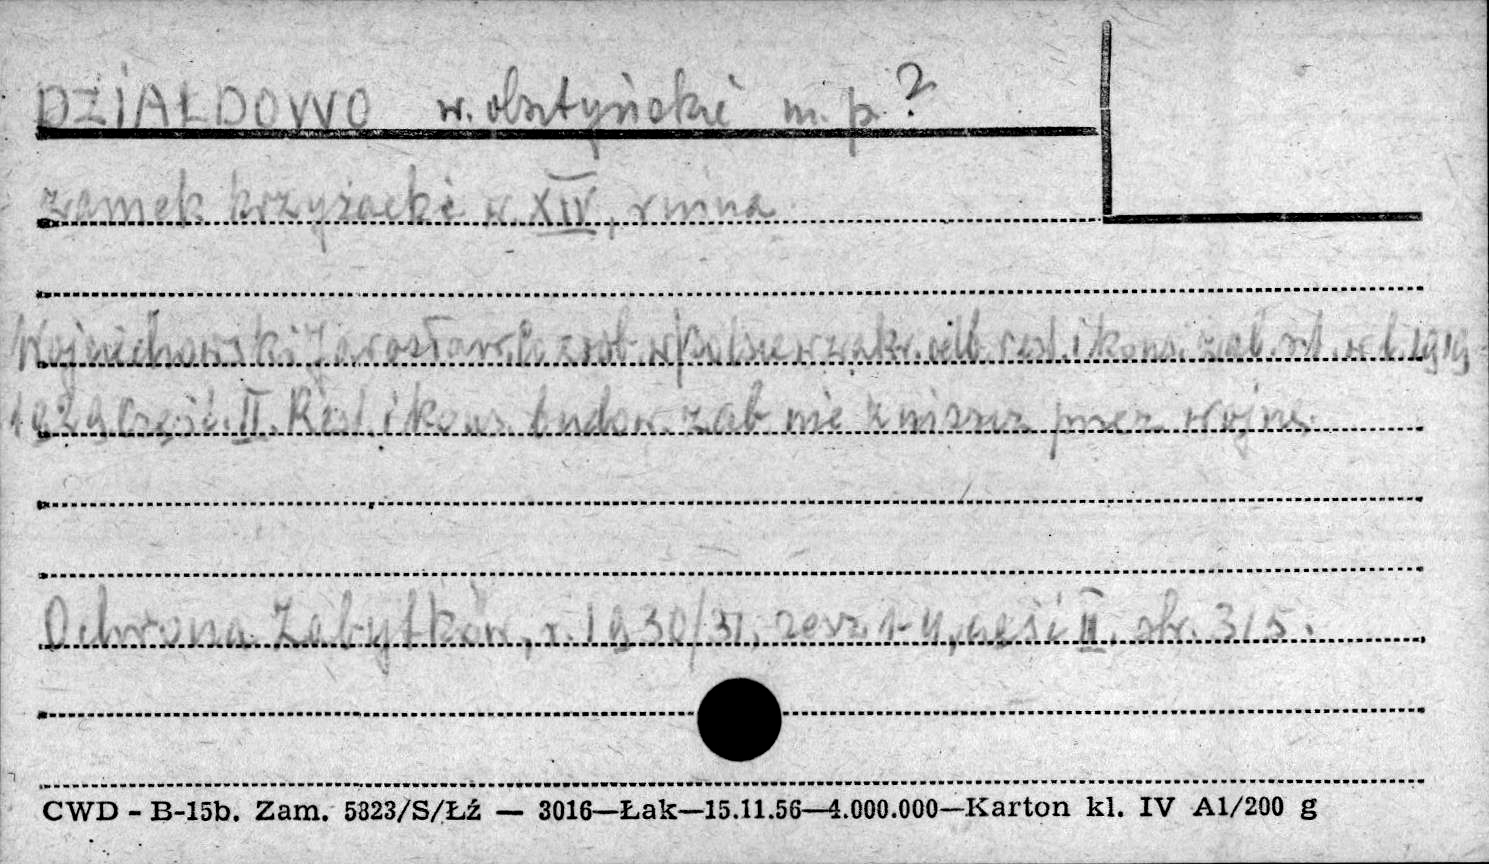 DZIAŁDOWO w. olsztyńskie m. p. ?
zamek krzyżacki w. XIV, ruina
Wojciechowski Jarosław, Co zrob. w Polsce w zakr. odb. rest. i kons. zab. szt. w l. 1919-
1929 Część. II. Rest. i kons. budow. zab nie zniszcz przez wojnę.
Ochrona Zabytków, r. 1930/31, zesz. 1-4, część II, str. 315.
CWD - B-15b. Zam. 5323/S/Łź — 3016—Łak—15.11.56—4.000.000—Karton kl. IV A1/200 g